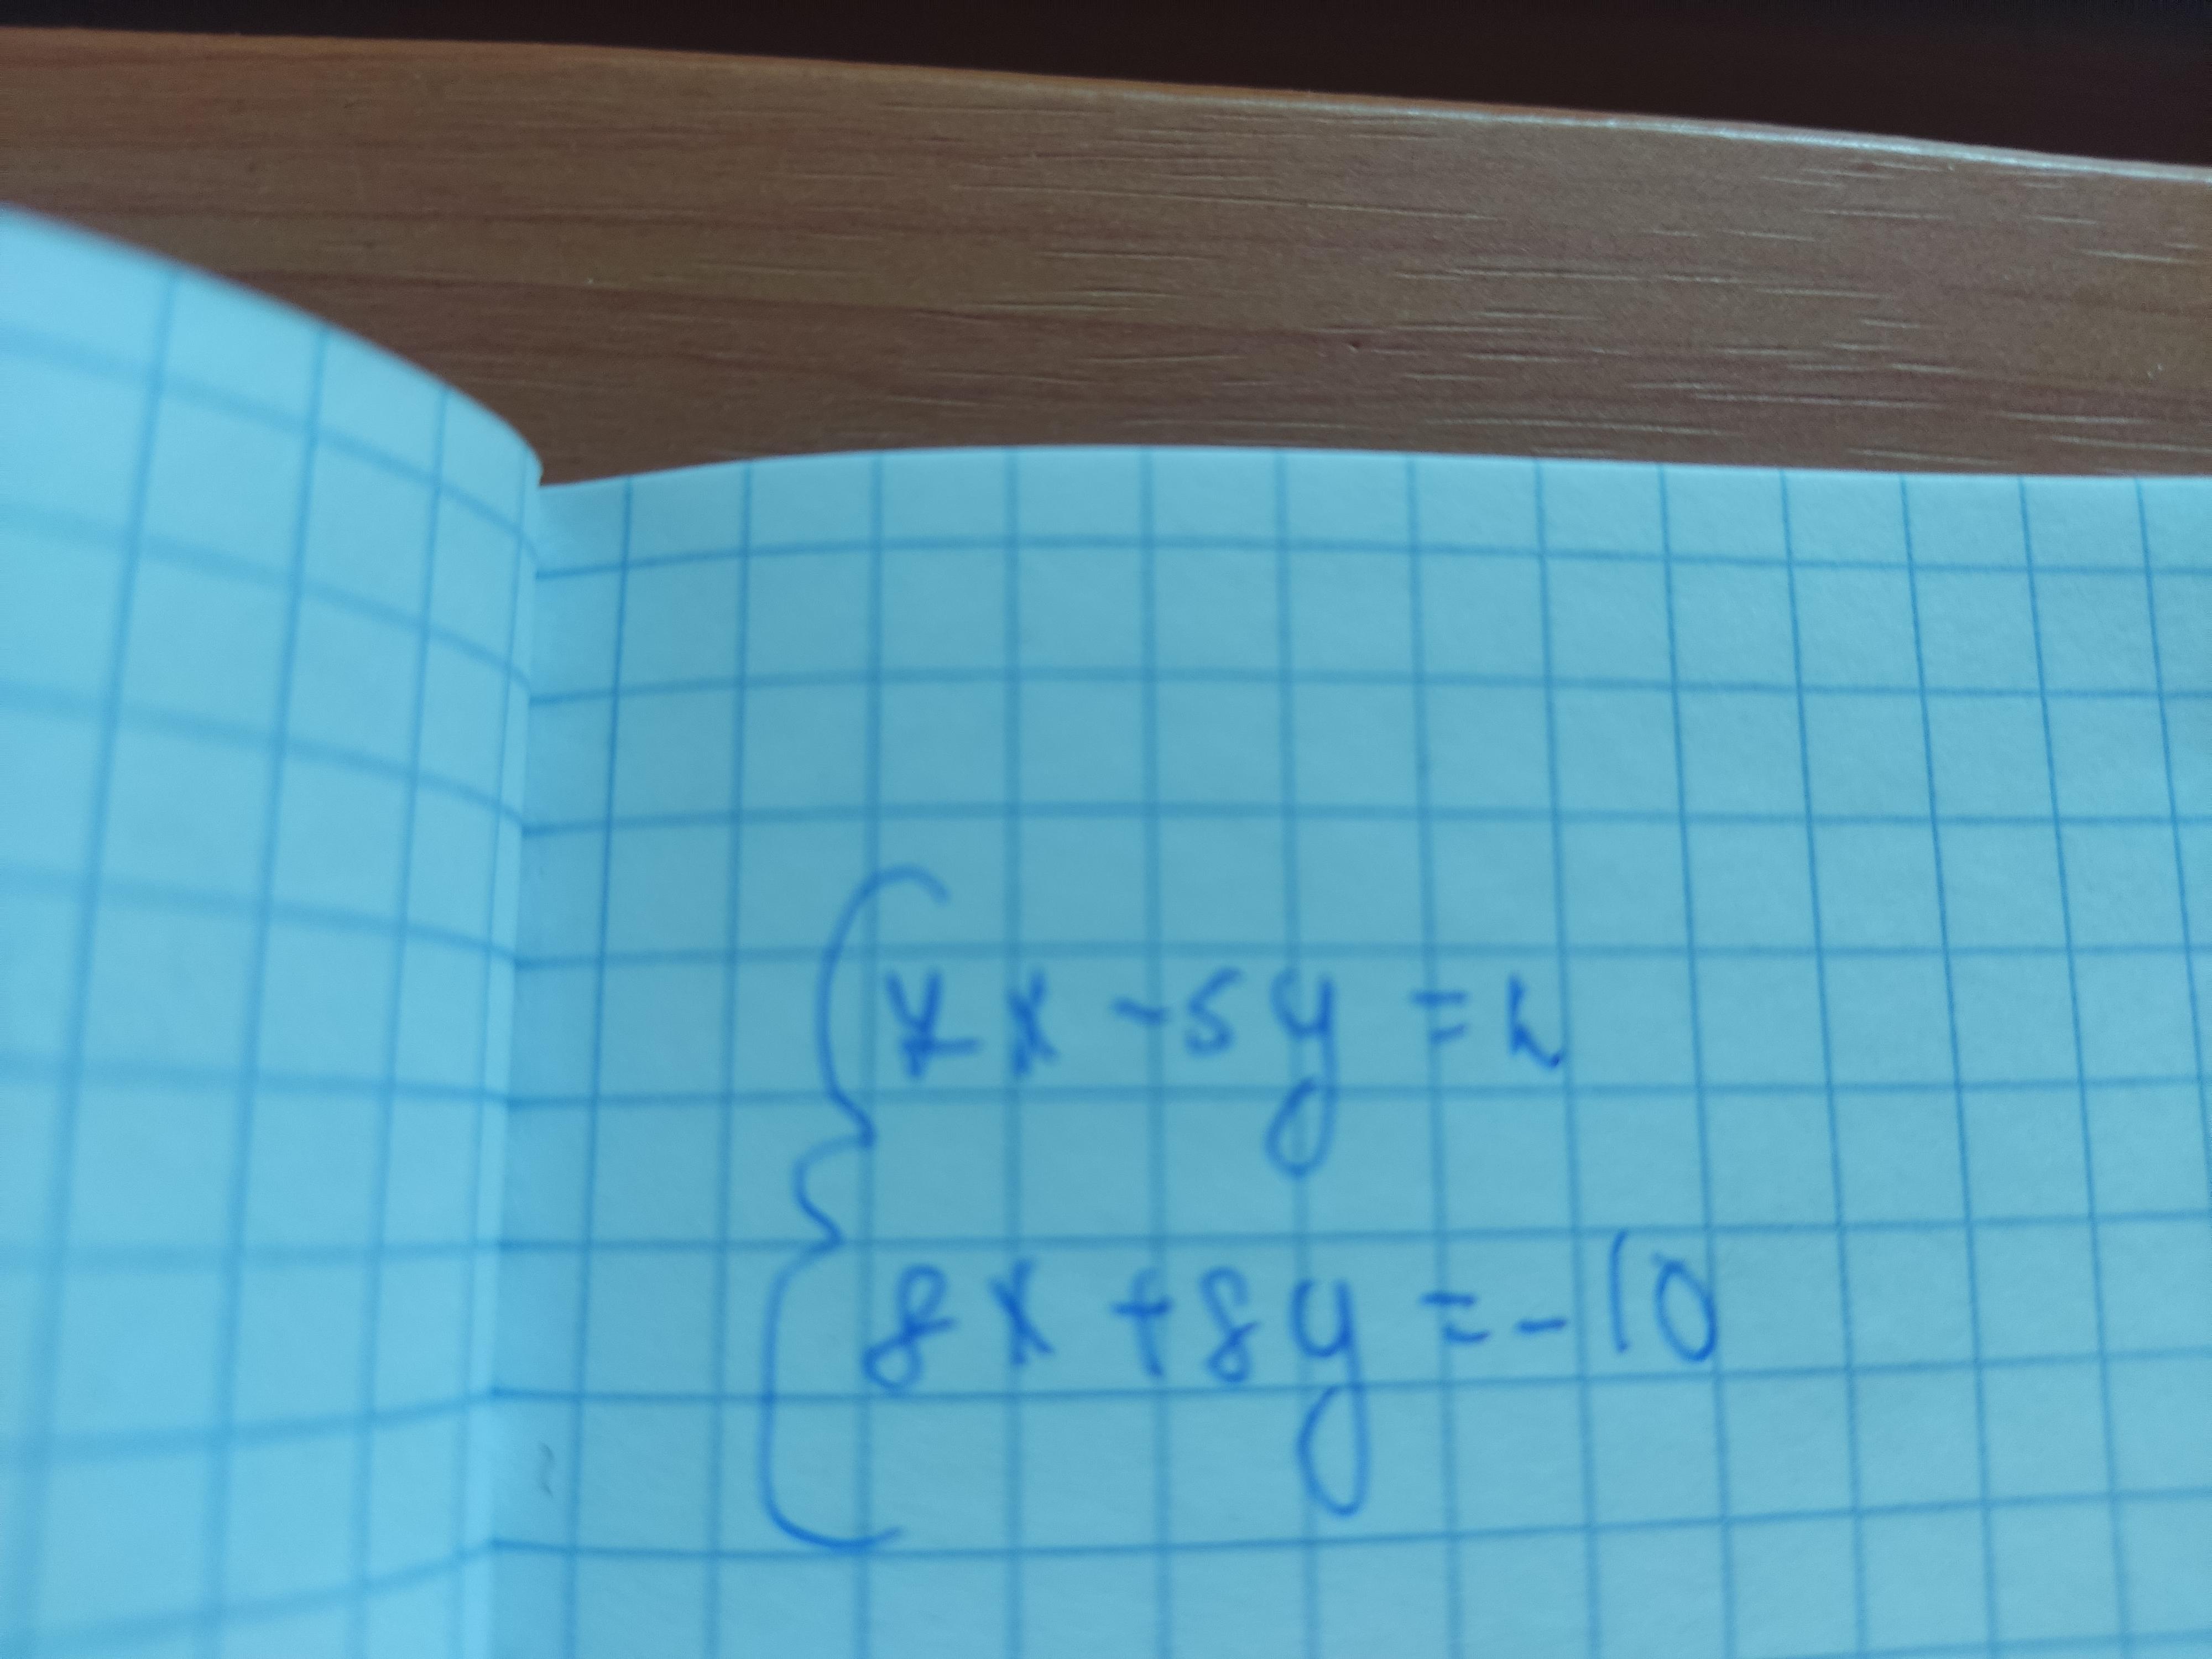 4x - 5y = 2
8x + 8y = -10